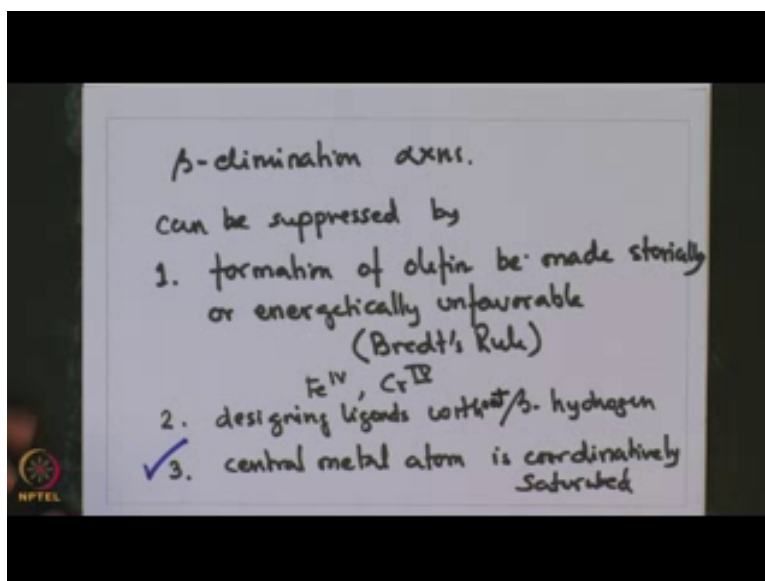 β-elimination rxns.
can be suppressed by
1. formation of olefin be made sterically
or energetically unfavorable
(Bredt's Rule)
Fe IV, Cr IV
2. designing ligands without β-hydrogen
3. central metal atom is coordinatively
saturated
NPTEL